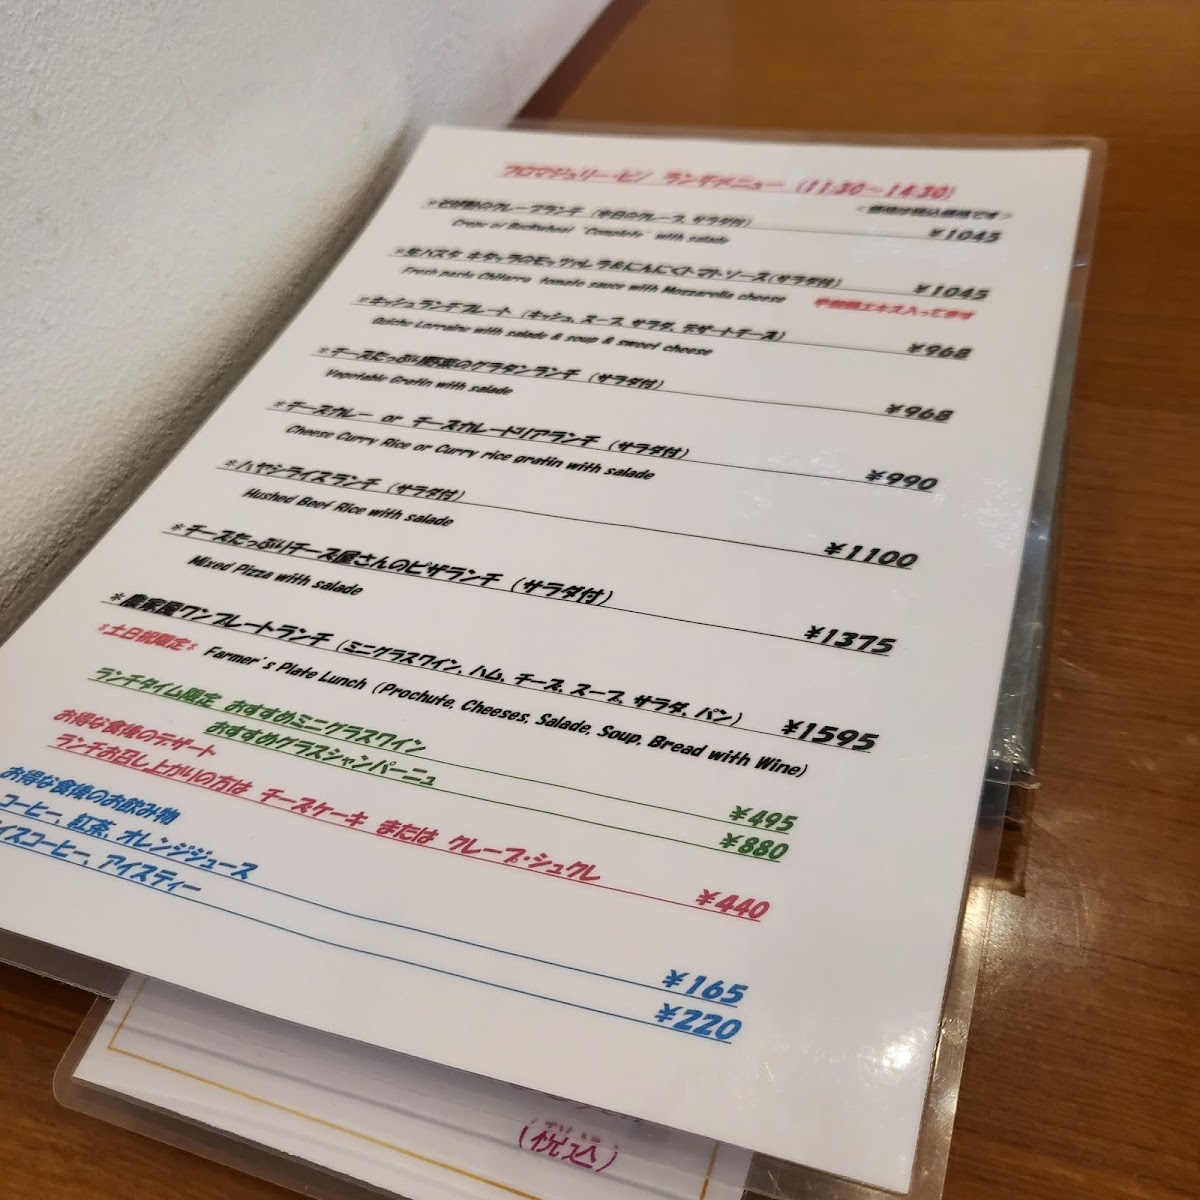 フロマジュリー・ピノ ランチメニュー (11:30～14:30)
＜価格は税込価格です＞
*そば粉のクレープランチ (本日のクレープ、サラダ付) ¥1045
Crepe of Buckwheat "Complete" with salade
*生パスタ キタッラのモッツァレラ&にんにくトマトソース(サラダ付) ¥1045
Fresh pasta Chitarra tomato sauce with Mozzarella cheese
エキス入ってます
*キッシュランチプレート (キッシュ、スープ、サラダ、デザートチーズ) ¥968
Quiche Lorraine with salade & soup & sweet cheese
*チーズたっぷり野菜のグラタンランチ (サラダ付) ¥968
Vegetable Gratin with salade
*チーズカレー or チーズカレードリアランチ (サラダ付) ¥990
Cheese Curry Rice or Curry rice gratin with salade
*ハヤシライスランチ (サラダ付) ¥1100
Hushed Beef Rice with salade
*チーズたっぷりチーズ屋さんのピザランチ (サラダ付) ¥1375
Mixed Pizza with salade
*農家風ワンプレートランチ (ミニグラスワイン、ハム、チーズ、スープ、サラダ、パン) ¥1595
*土日祝限定* Farmer's Plate Lunch (Prochute, Cheeses, Salade, Soup, Bread with Wine)
ランチタイム限定 おすすめミニグラスワイン ¥495
おすすめグラスシャンパーニュ ¥880
お得な食後のデザート
ランチお召し上がりの方は チーズケーキ または クレープ・シュクレ ¥440
お得な食後のお飲み物
コーヒー、紅茶、オレンジジュース ¥165
イスコーヒー、アイスティー ¥220
(税込)